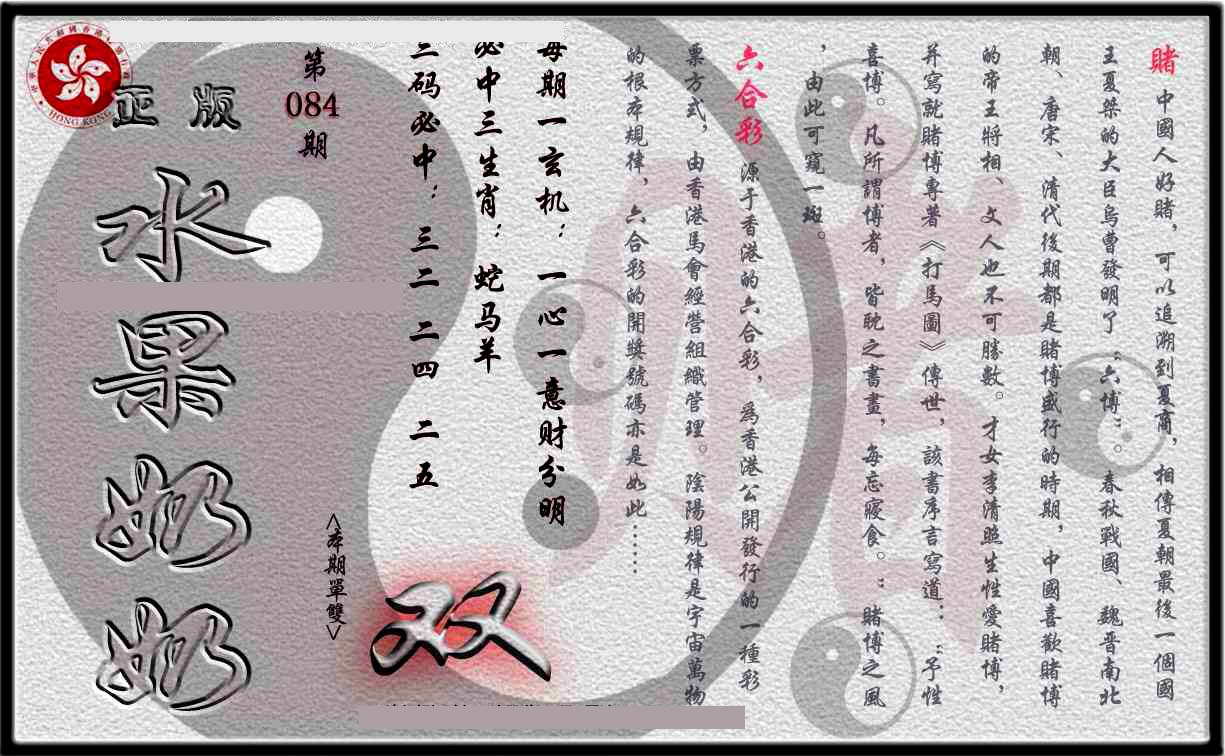 賭 中國人好賭，可以追溯到夏商，相傳夏朝最後一個國
王夏桀的大臣烏曹發明了“六博”。春秋戰國、魏晋南北
朝、唐宋、清代後期都是賭博盛行的時期，中國喜歡賭博
的帝王將相、文人也不可勝數。才女李清照生性愛賭博，
并寫就賭博專著《打馬圖》傳世，該書序言寫道：“予性
喜博。凡所謂博者，皆耽之書晝，每忘寢食。”賭博之風
，由此可窺一斑。
六合彩 源于香港的六合彩，爲香港公開發行的一種彩
票方式，由香港馬會經營組織管理。陰陽規律是宇宙萬物
的根本規律，六合彩的開獎號碼亦是如此……
每期一玄机：一心一意财分明
必中三生肖：蛇马羊
三码必中：三二 二四 二五
第
084
期
<本期單雙>
双
正版
水果奶奶
HONG KONG